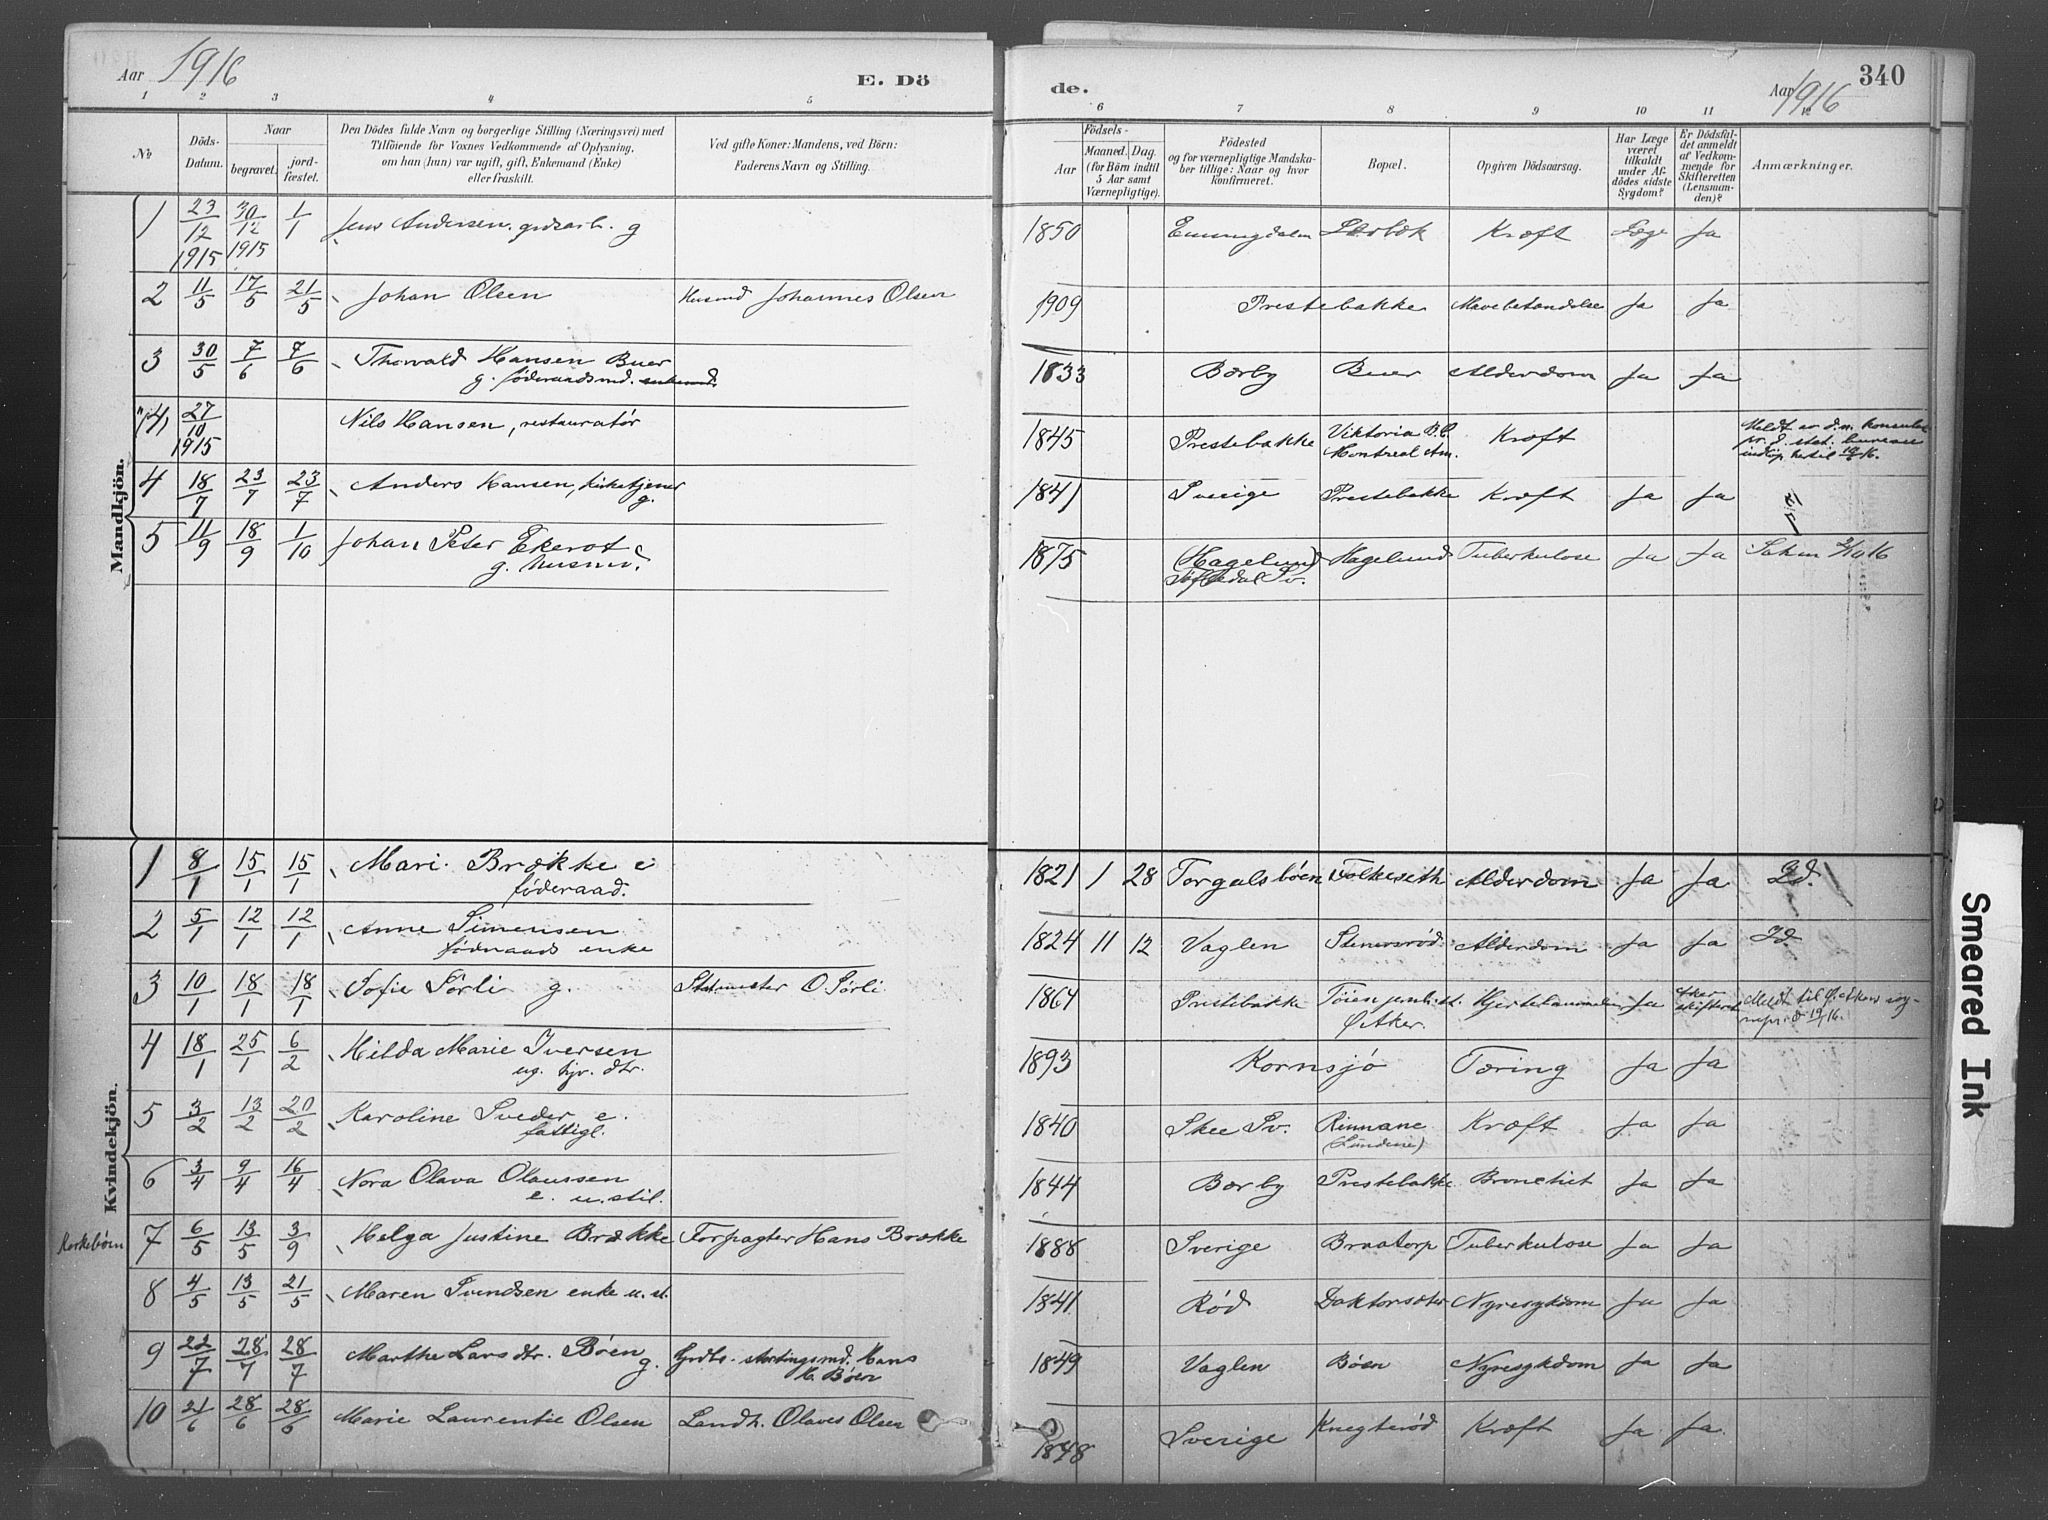 Aar 1916
E. Dö
de.
Aar 1916
340
1 2 3 4 5 6 7 8 9 10 11 12
No
Döds-
Datum.
Naar
begravet.
jord-
fæstet.
Den Dödes fulde Navn og borgerlige Stilling (Næringsvei) med
Tilföiende for Voxnes Vedkommende af Oplysning,
om han (hun) var ugift, gift, Enkemand (Enke)
eller fraskilt.
Ved gifte Koner: Mandens, ved Börn:
Faderens Navn og Stilling.
Födsels-
Aar
Maaned. Dag.
(for Börn indtil
5 Aar samt
Værnepligtige).
Födested
og for værnepligtige Mandska-
ber tillige: Naar og hvor
konfirmeret.
Bopæl.
Opgiven Dödsaarsag.
Har Læge
været
tilkaldt
under Af-
dödes sidste
Sygdom?
Er Dödsfal-
det anmeldt
af Vedkom-
mende for
Skifteretten
(Lensman-
den)?
Anmærkninger.
Mandkjön.
1 23/12 1915 30/12 1915 1/1 Jens Andersen. grdsarb. g 1850 Kræft Læge Ja
2 11/5 17/5 21/5 Johan Olsen Husmd Johannes Olsen 1909 Prestebakke Mavebetændelse Ja Ja
3 30/5 7/6 7/6 Thorvald Hansen Buer
g. föderaadsmd. enkemd. 1833 Bærby Buer Alderdom Ja Ja
"(4) 27/10 1915 Nils Hansen, restauratør 1845 Prestebakke Viktoria B.C.
Montreal Am. Kræft Meldt av d. n. konsulat
pr. d. stat. bureau
indløp hertil 10/6 16.
4 18/7 23/7 23/7 Anders Hansen, kirketjener
g. 1841 Sverige Prestebakke Kræft Ja Ja
5 11/9 18/9 1/10 Johan Peter Ekerot
g. husmd. 1875 (Hagelund)
Sv. Hagelund Tuberkulose Ja Ja
Kvindekjön.
1 8/1 15/1 15/1 Mari Brække e
föderaad. 1821 1 28 Torgalsbøen Folkeseth Alderdom Ja Ja
2 5/1 12/1 12/1 Anne Simensen
föderaads enke 1824 11 12 Vaglen Stenersrød Alderdom Ja Ja
3 10/1 18/1 18/1 Sofie Sørli g. Stmester O. Sørli 1864 Prestebakke Tøien jernb.st.
Ø. Aker. Hjertelammelse Ja Aker
skifteret Meldt til Ø. Akers sog-
nepr. d 19/1 16.
4 18/1 25/1 6/2 Hilda Marie Iversen
ug. hjv. dtr. 1893 Kornsjø Tæring Ja Ja
5 3/2 13/2 20/2 Karoline Sveder e.
fattigl. 1840 Skee Sv. Rinnane
(Lundene) Kræft Ja Ja
6 3/4 9/4 16/4 Nora Olava Olaussen
e. u. stil. 1844 Bærby Prestebakke Bronchit Ja Ja
7 6/5 13/5 3/9 Helga Justine Brække Forpagter Hans Brække 1888 Sverige Braatorp Tuberkulose Ja Ja
8 4/5 13/5 21/5 Maren Svendsen enke u. st. 1841 Rød Doktorsæter Nyresykdom Ja Ja
9 22/7 28/7 28/7 Marthe Larsdtr. Bøen
g. Grdbr. stortingsmd. Hans
H. Bøen 1849 Vaglen Bøen Nyresykdom Ja Ja
10 21/6 28/6 28/6 Marie Laurentie Olsen Landh. Olaves Olsen 1848 Sverige Knegterød Kræft Ja Ja
Smeared Ink